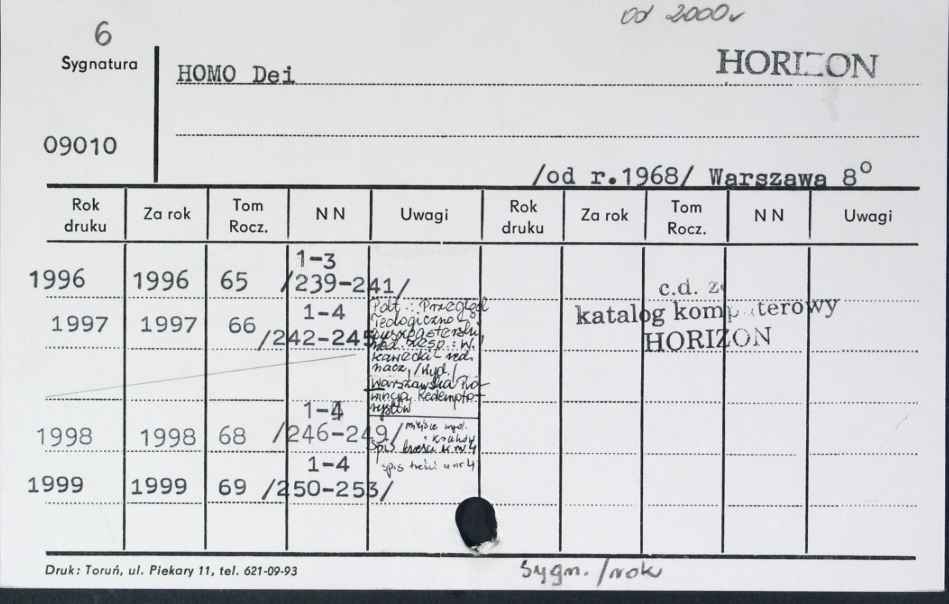 od 2000r
6
Sygnatura
HOMO Dei
HORIZON
09010
/od r.1968/ Warszawa 8°
Rok druku Za rok Tom Rocz. NN Uwagi Rok druku Za rok Tom Rocz. NN Uwagi
1996 1996 65 1-3 /239-241/
1997 1997 66 1-4 /242-245
Podt.: Przegląd
Teologiczno
Duszpasterski
red. Zesp.: W.
Kawecki red.
nacz, /Wyd./
Warszawska Pro-
wincja Redempto-
rystów
1998 1998 68 1-4 /246-249/
miejsce wyd.
: Kraków
Spis treści w nr 4
1999 1999 69 1-4 /250-253/
spis treści w nr 4
c.d. z
katalog komputerowy
HORIZON
Druk: Toruń, ul. Piekary 11, tel. 621-09-93
Sygn./rok